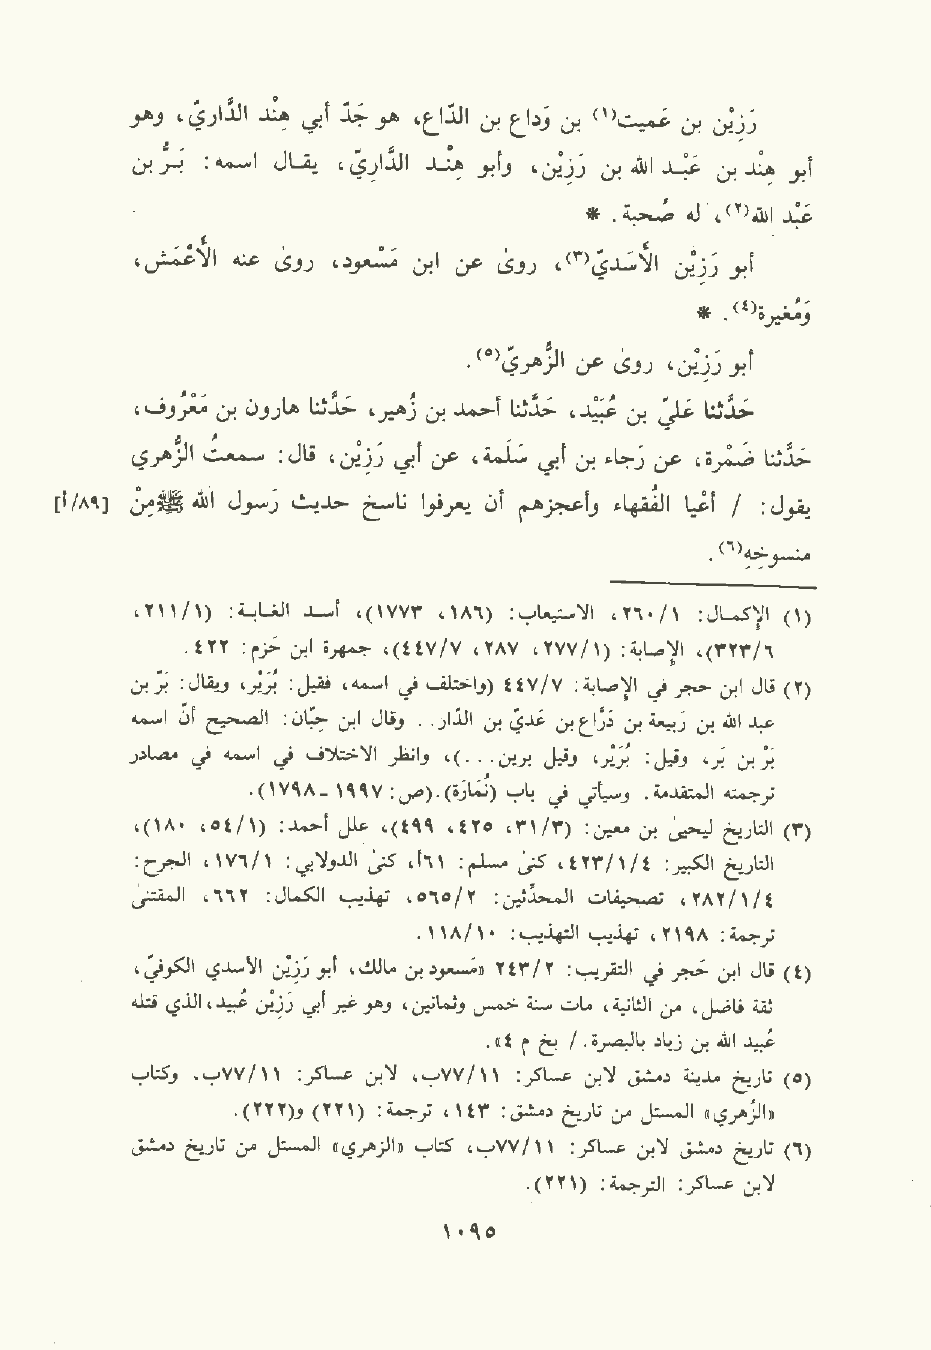 رَزِيْن بن عَميت(١) بن وَداع بن الدّاع، هو جَدّ أبي هِنْد الدَّاريّ، وهو
أبو هِنْد بن عَبْد الله بن رَزِيْن، وأبو هِنْد الدَّاريّ، يقال اسمه: بَرُّ بن
عَبْد الله(٢)، له صُحبة. *
أبو رَزِيْن الأَسَديّ(٣)، روىٰ عن ابن مَسْعود، روىٰ عنه الأَعْمَش،
وَمُغيرة(٤). *
أبو رَزِيْن، روىٰ عن الزُّهريّ(٥).
حَدَّثنا عَليّ بن عُبَيْد، حَدَّثنا أحمد بن زُهير، حَدَّثنا هارون بن مَعْرُوف،
حَدَّثنا ضَمْرة، عن رَجاء بن أبي سَلَمة، عن أبي رَزِيْن، قال: سمعتُ الزُّهري
يقول: / أعْيا الفُقهاء وأعجزهم أن يعرفوا ناسخ حديث رَسول الله ﷺ مِنْ [٨٩/أ]
منسوخِهِ(٦).
(١) الإكمال: ٢٦٠/١، الاستيعاب: (١٨٦، ١٧٧٣)، أسد الغابة: (٢١١/١،
٣٢٣/٦)، الإصابة: (٢٧٧/١، ٢٨٧، ٤٤٧/٧)، جمهرة ابن حَزم: ٤٢٢.
(٢) قال ابن حجر في الإصابة: ٤٤٧/٧ (واختلف في اسمه، فقيل: بُرَيْر، ويقال: بَرّ بن
عبد الله بن رَبيعة بن دُرّاع بن عَديّ بن الدّار.. وقال ابن حِبّان: الصحيح أنّ اسمه
بَرّ بن بَر، وقيل: بُرَيْر، وقيل برين...)، وانظر الاختلاف في اسمه في مصادر
ترجمته المتقدمة. وسيأتي في باب (نُمَارَة).(ص: ١٩٩٧ - ١٧٩٨).
(٣) التاريخ ليحيىٰ بن معين: (٣١/٣، ٤٢٥، ٤٩٩)، علل أحمد: (٥٤/١، ١٨٠)،
التاريخ الكبير: ٤٢٣/١/٤، كنىٰ مسلم: ٦١أ، كنىٰ الدولابي: ١٧٦/١، الجرح:
٢٨٢/١/٤، تصحيفات المحدّثين: ٥٦٥/٢، تهذيب الكمال: ٦٦٢، المقتنىٰ
ترجمة: ٢١٩٨، تهذيب التهذيب: ١١٨/١٠.
(٤) قال ابن حَجر في التقريب: ٢٤٣/٢ «مَسعود بن مالك، أبو رَزِيْن الأسدي الكوفيّ،
ثقة فاضل، من الثانية، مات سنة خمس وثمانين، وهو غير أبي رَزِيْن عُبيد، الذي قتله
عُبيد الله بن زياد بالبصرة. / بخ م ٤».
(٥) تاريخ مدينة دمشق لابن عساكر: ٧٧/١١ب، لابن عساكر: ٧٧/١١ب. وكتاب
«الزُهري» المستل من تاريخ دمشق: ١٤٣، ترجمة: (٢٢١) و(٢٢٢).
(٦) تاريخ دمشق لابن عساكر: ٧٧/١١ب، كتاب «الزهري» المستل من تاريخ دمشق
لابن عساكر: الترجمة: (٢٢١).
١٠٩٥